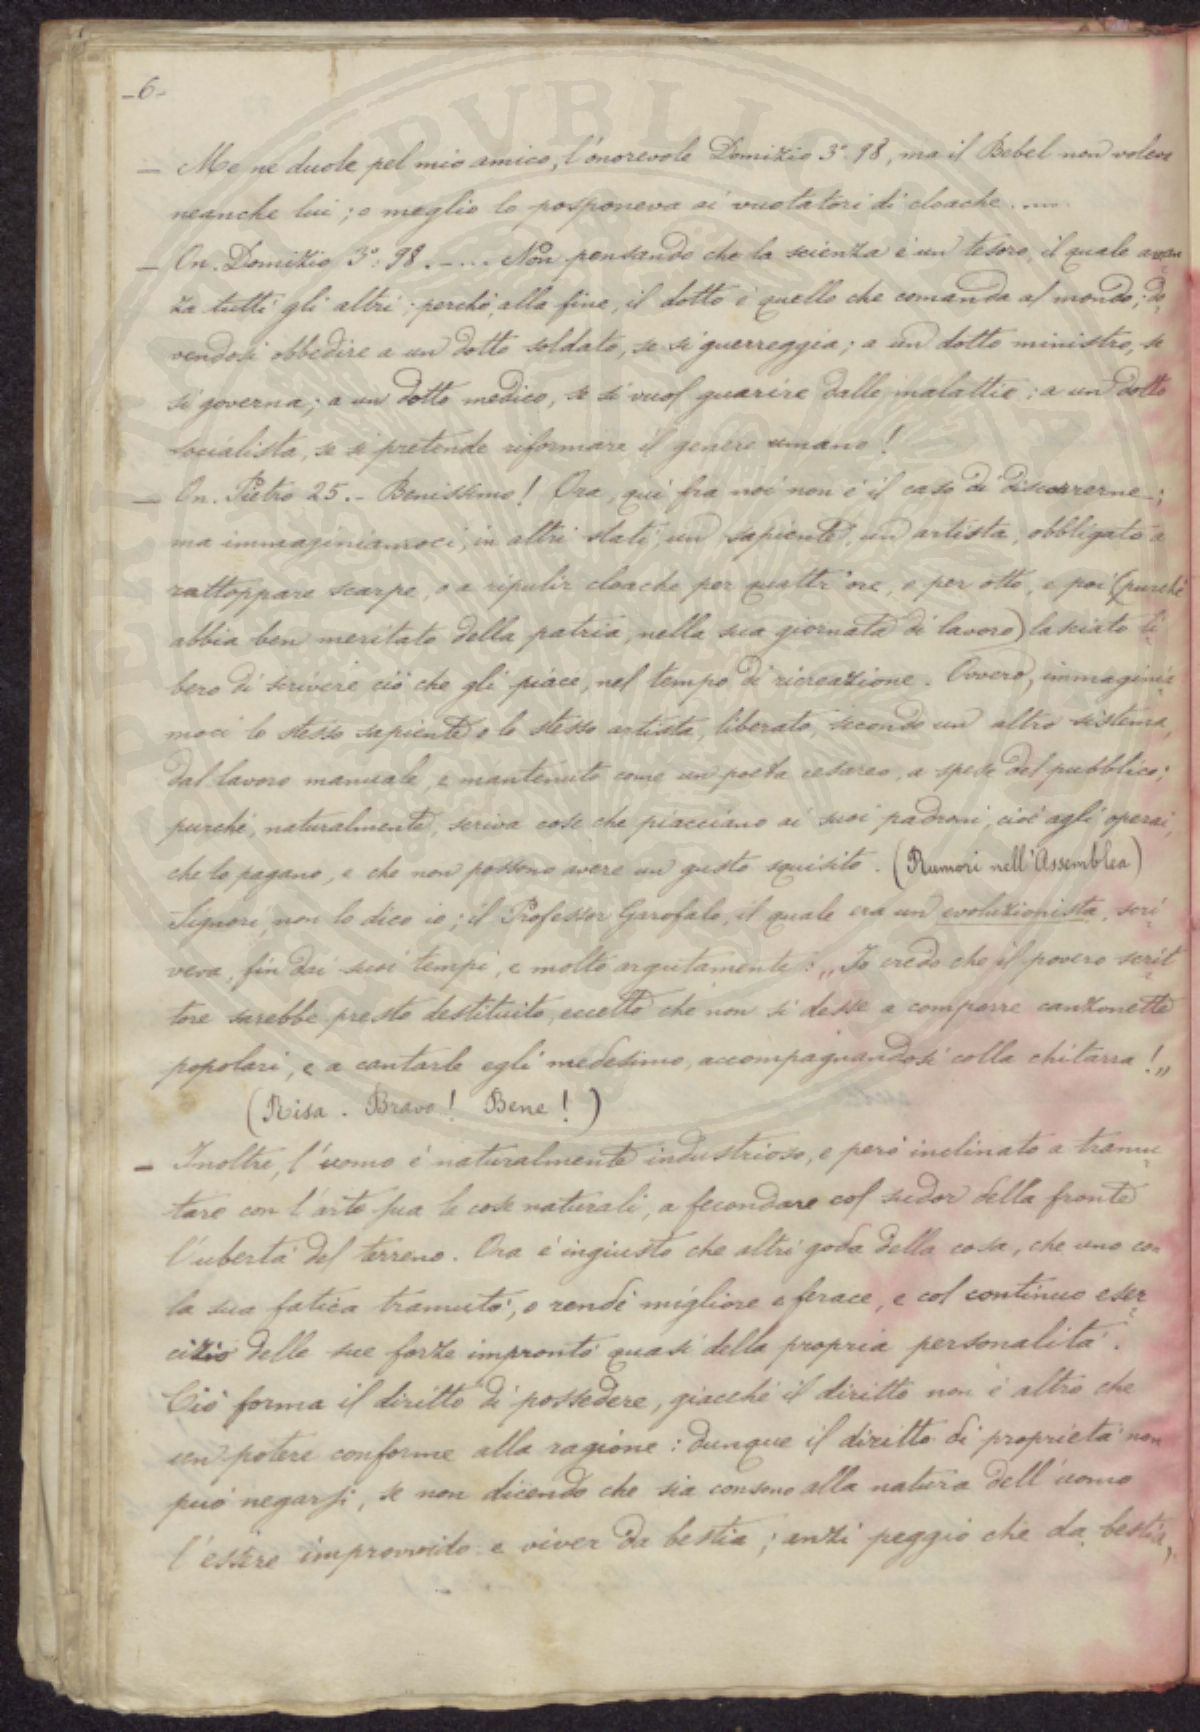 -6-
— Me ne duole pel mio amico, l'onorevole Domizio 3º. 98, ma il Bebel non voleva
neanche lui; o meglio lo posponeva ai vuotatori di cloache.....
— On. Domizio 3º: 98. -.... Non pensando che la scienza è un tesoro, il quale avan
za tutti gli altri; perchè, alla fine, il dotto è quello che comanda al mondo; do
vendosi obbedire a un dotto soldato, se si guerreggia; a un dotto ministro, se
si governa; a un dotto medico, se si vuol guarire dalle malattie; a un dotto
socialista, se si pretende riformare il genere umano!
— On. Pietro 25. - Benissimo! Ora, qui fra noi non è il caso di discorrerne;
ma immaginiamoci, in altri stati, un sapiente, un artista, obbligato a
rattoppare scarpe, o a ripulir cloache per quattr'ore, o per otto, e poi (purchè
abbia ben meritato della patria, nella sua giornata di lavoro) lasciato li
bero di scrivere ciò che gli piace, nel tempo di ricreazione. Ovvero, immaginia
moci lo stesso sapiente o lo stesso artista, liberato, secondo un altro sistema,
dal lavoro manuale, e mantenuto come un poeta cesareo, a spese del pubblico;
purchè, naturalmente, scriva cose che piacciano ai suoi padroni, cioè agli operai,
che lo pagano, e che non possono avere un gusto squisito. (Rumori nell'Assemblea)
Signori, non lo dico io; il Professor Garofalo, il quale era un evoluzionista, scri
veva, fin dai suoi tempi, e molto argutamente: „Io credo che il povero scrit
tore sarebbe presto destituito, eccetto che non si desse a comporre canzonette
popolari, e a cantarle egli medesimo, accompagnandosi colla chitarra!„
(Risa. Bravo! Bene!)
— Inoltre, l'uomo è naturalmente industrioso, e però inclinato a tramu
tare con l'arte sua le cose naturali, a fecondare col sudor della fronte
l'ubertà del terreno. Ora è ingiusto che altri goda della cosa, che uno con
la sua fatica tramutò, o rendè migliore e ferace, e col continuo eser
cizio delle sue forze improntò quasi della propria personalità.
Ciò forma il diritto di possedere, giacchè il diritto non è altro che
un potere conforme alla ragione: dunque il diritto di proprietà non
può negarsi, se non dicendo che sia consono alla natura dell'uomo
l'essere improvvido e viver da bestia; anzi peggio che da bestia,